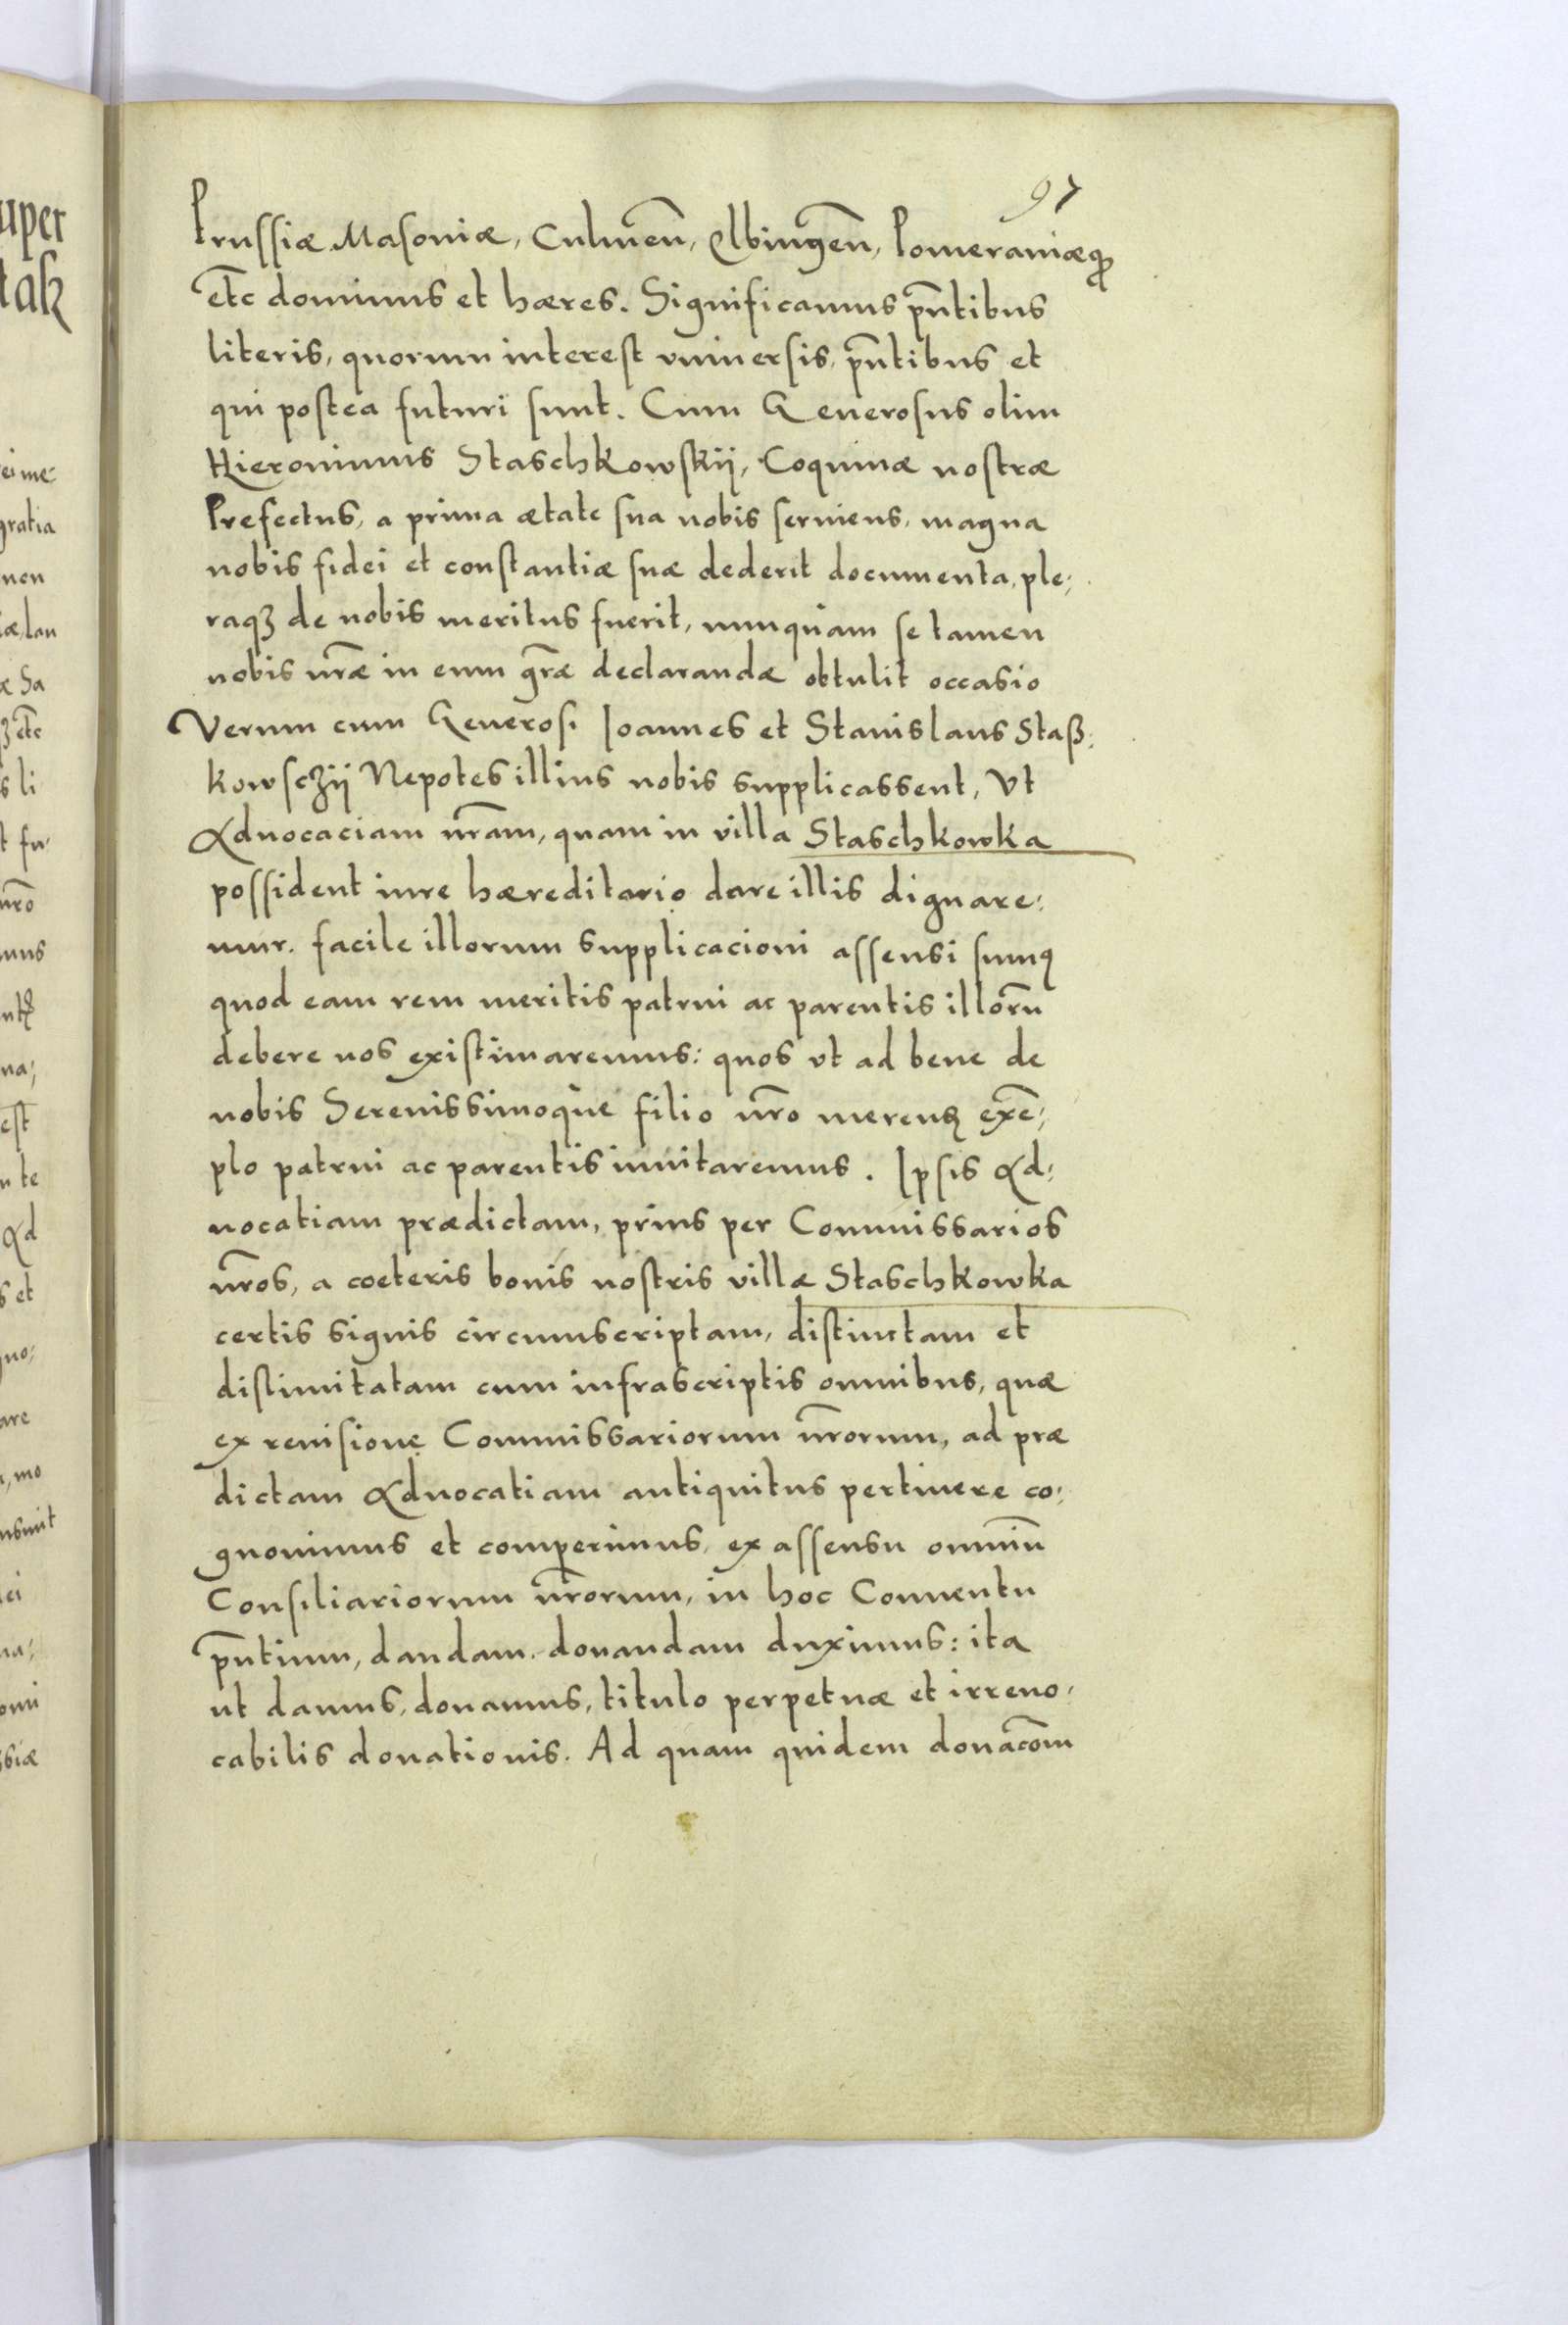 97
Prussiæ Masoviæ, Culmeñ, Elbingeñ, Pomeraniæqꝫ
etc̃ dominus et hæres. Significamus pñtibus
literis, quorum interest vniuersis, pñtibus et
qui postea futuri sunt. Cum Generosus olim
Hieronimus Staschkowskij, Coquinæ nostræ
Prefectus, a prima ætate sua nobis seruiens, magna
nobis fidei et constantiæ suæ dederit documenta, ple:
raqꝫ de nobis meritus fuerit, nunquam se tamen
nobis nr̃æ in eum gr̃æ declarandæ obtulit occasio
Verum cum Generosi Ioannes et Stanislaus Staß:
kowsczij Nepotes illius nobis supplicassent, Vt
Aduocaciam nr̃am, quam in villa Staschkowka
possident iure hæreditario dare illis dignare:
mur. facile illorum supplicacioni assensi sumꝰ
quod eam rem meritis patrui ac parentis illorũ
debere nos existimaremus: quos vt ad bene de
nobis Serenissimoque filio nr̃o merenđ exẽ:
plo patrui ac parentis inuitaremus. Ipsis Ad:
uocatiam prædictam, prius per Commissarios
nr̃os, a cœteris bonis nostris villæ Staschkowka
certis signis circumscriptam, distinctam et
distimitatam cum infrascriptis omnibus, quæ
ex reuisione Commissariorum nr̃orum, ad præ
dictam Aduocatiam antiquitus pertinere co:
gnouimus et comperimus, ex assensu omniũ
Consiliariorum nr̃orum, in hoc Conuentu
pñtium, dandam, donandam duximus: ita
ut damus, donamus, titulo perpetuæ et irreuo:
cabilis donationis. Ad quam quidem donac̃om
uper
ei me
gratia
nen
Sa
etc̃
s li
t fu
nr̃o
mus
na;
est
te
Ad
s et
gno:
are
mo
ei
omi